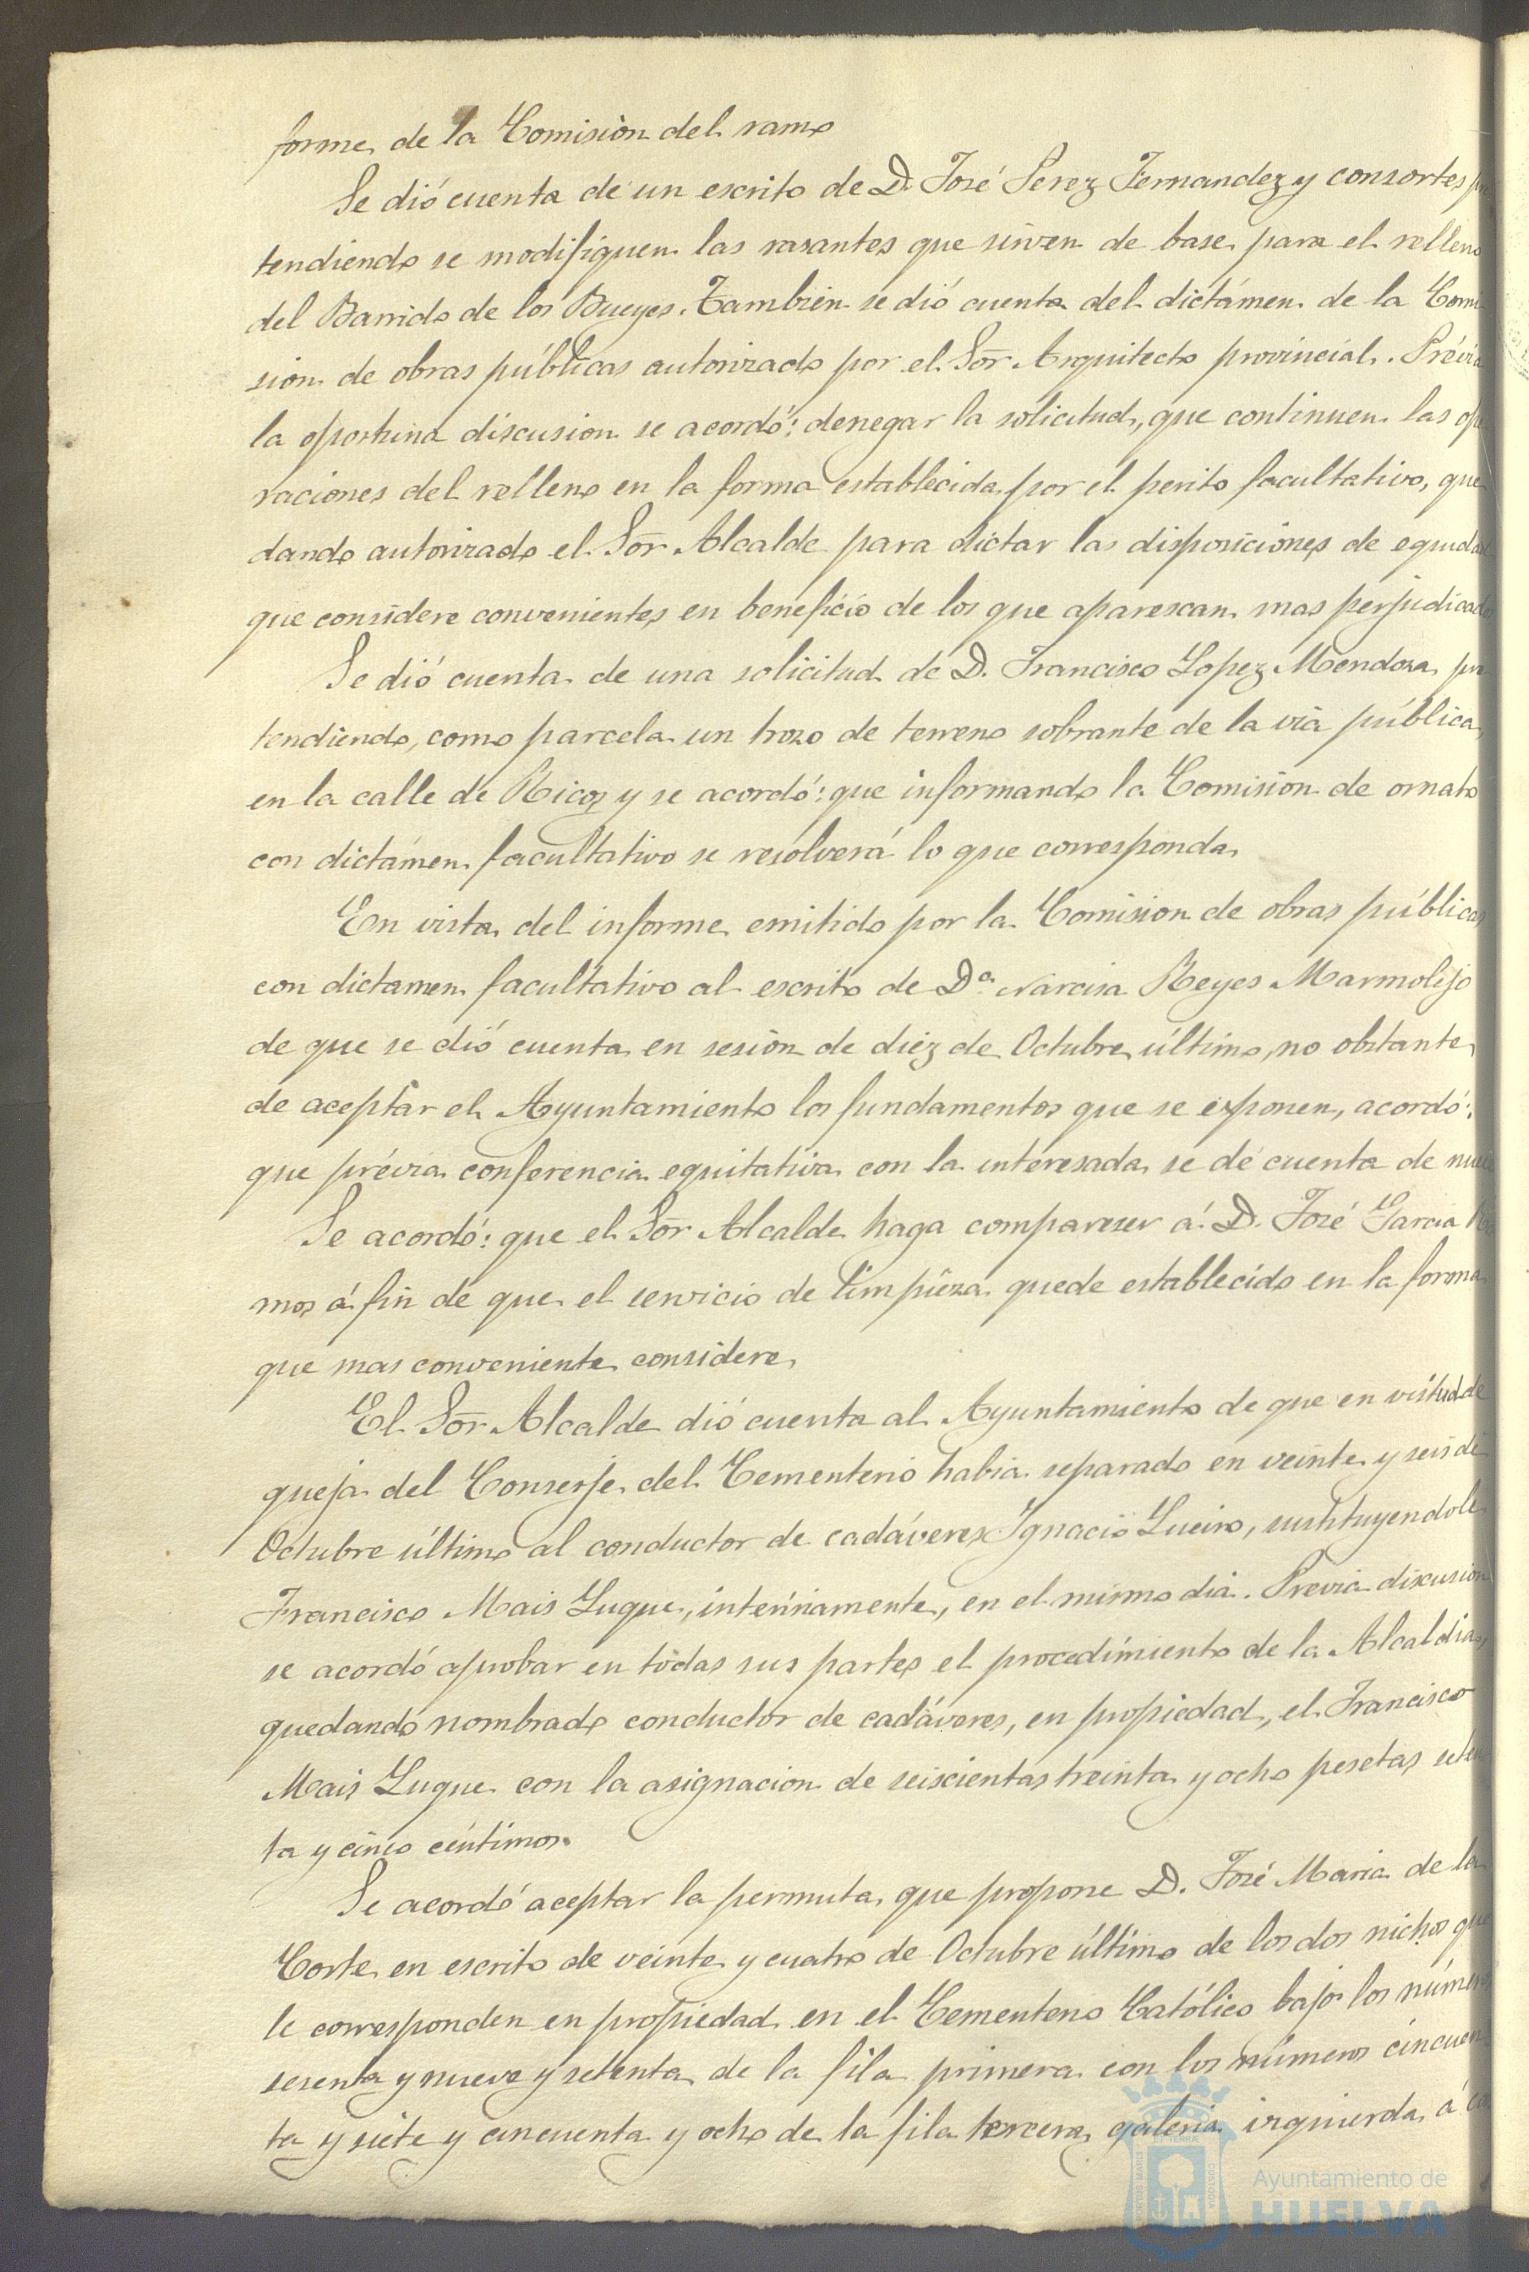 forme de la Comisión del ramo
Se dió cuenta de un escrito de D. José Perez Fernandez y consortes pre
tendiendo se modifiquen las rasantes que sirven de base para el relleno
del Barrido de los Bueyes. Tambien se dió cuenta del dictámen de la Comi
sion de obras públicas autorizado por el Sor Arquitecto provincial. Prévia
la oportuna discusion se acordó: denegar la solicitud, que continuen las ope
raciones del relleno en la forma establecida por el perito facultativo, que
dando autorizado el Sor Alcalde para dictar las disposiciones de equidad
que considere convenientes en beneficio de los que aparescan mas perjudicados
Se dió cuenta de una solicitud de D. Francisco Lopez Mendoza pre
tendiendo, como parcela un trozo de terreno sobrante de la via pública,
en la calle de Ricos y se acordó: que informando la Comision de ornato
con dictámen facultativo se resolverá lo que corresponda
En vista del informe emitido por la Comision de obras públicas
con dictamen facultativo al escrito de Dª Narcisa Reyes Marmolejo
de que se dió cuenta en sesión de diez de Octubre último, no obstante
de aceptar el Ayuntamiento los fundamentos que se exponen, acordó:
que prévia conferencia equitativa con la interesada se dé cuenta de nuevo
Se acordó: que el Sor Alcalde haga compareser á D. José Garcia
mos á fin de que el servicio de limpieza quede establecido en la forma
que mas conveniente considere
El Sor Alcalde dió cuenta al Ayuntamiento de que en virtud de
queja del Conserje del Cementerio habia separado en veinte y seis de
Octubre último al conductor de cadáveres Ignacio Lueiro, sustituyendole
Francisco Mais Luque, interinamente, en el mismo dia. Previa discusion
se acordó aprobar en todas sus partes el procedimiento de la Alcaldia,
quedando nombrado conductor de cadáveres, en propiedad, el Francisco
Mais Luque con la asignacion de seiscientas treinta y ocho pesetas seten
ta y cinco céntimos.
Se acordó aceptar la permuta que propone D. José Maria de la
Corte en escrito de veinte y cuatro de Octubre último de los dos nichos que
le corresponden en propiedad en el Cementerio Católico bajo los números
sesenta y nueve y setenta de la fila primera con los números cincuen
ta y siete y cincuenta y ocho de la fila tercera galeria izquierda á
Ayuntamiento de
HUELVA